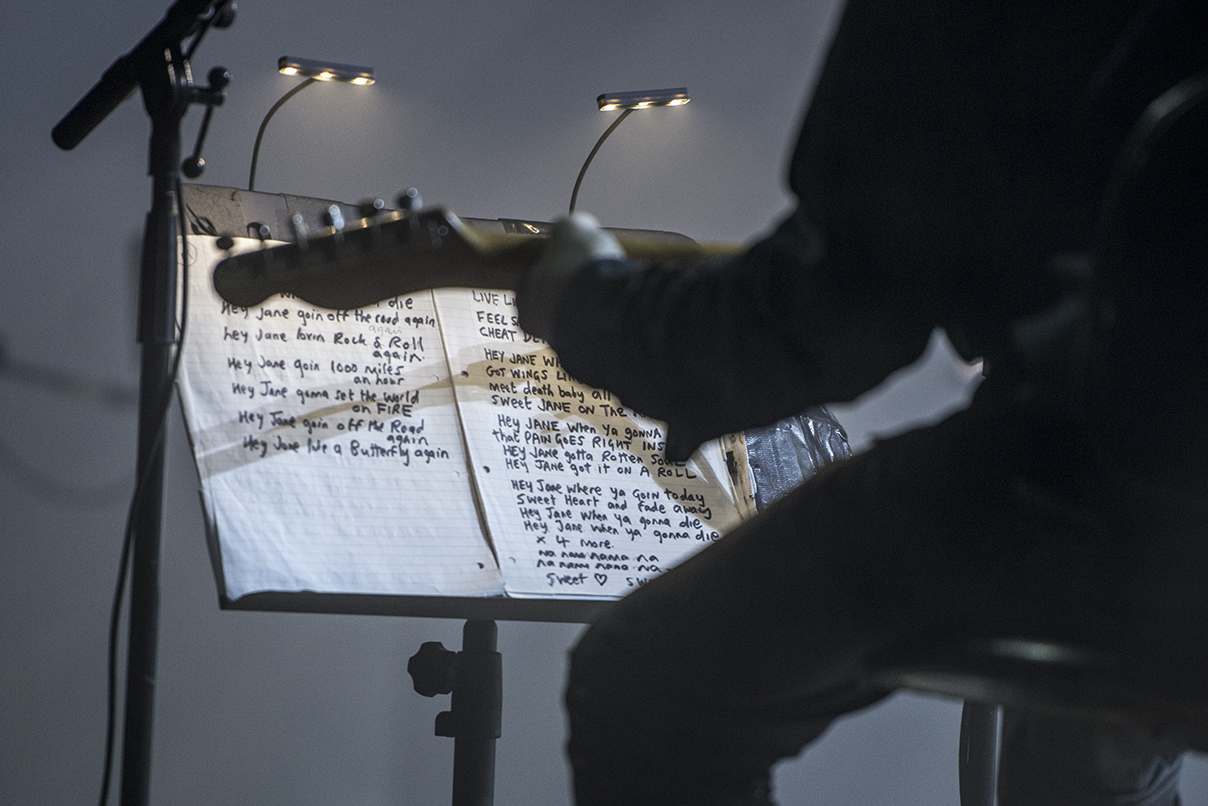 die
Hey Jane goin off the road again
again
hey Jane born Rock & Roll
again.
Hey Jane goin 1000 miles
an hour
Hey Jane gonna set the world
on FIRE
Hey Jane goin off the Road
again
Hey Jane like a Butterfly again
LIVE
FEEL
CHEAT
HEY JANE
GOT WINGS
meet death baby all
SWEET JANE ON THE
HEY JANE WHEN Ya gONNA
that PAIN GOES RIGHT
HEY JANE gotta Rotten
HEY JANE got it ON A ROLL
HEY Jane where ya goin today
Sweet Heart and fade away
Hey Jane when ya gonna die
Hey Jane when ya gonna die
x 4 more.
na nana nanna na
na nana nanna na
Sweet ♡